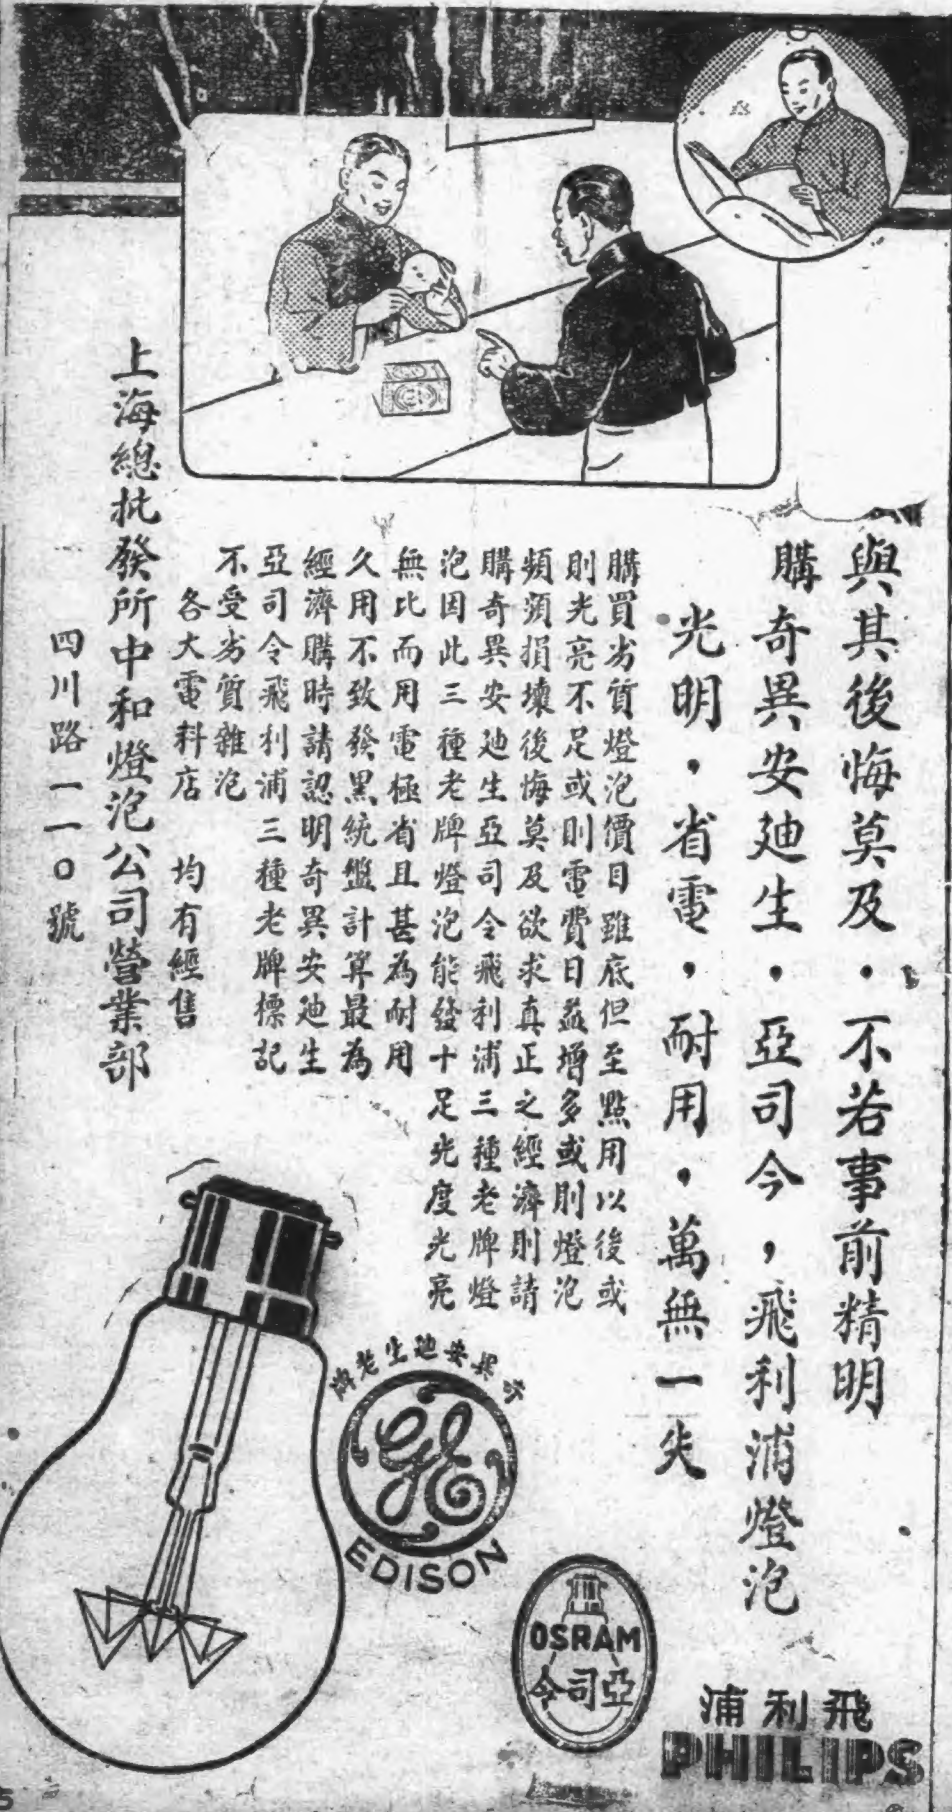 與其後悔莫及・不若事前精明
購奇異安廸生・亞司令，飛利浦燈泡
光明・省電，耐用・萬無一失
購買劣質燈泡價目雖底但至點用以後或
則光亮不足或則電費日益增多或則燈泡
頻頻損壞後悔莫及欲求真正之經濟則請
購奇異安廸生亞司令飛利浦三種老牌燈
泡因此三種老牌燈泡能發十足光度光亮
無比而用電極省且甚為耐用
久用不致發黑統盤計算最為
經濟購時請認明奇異安廸生
亞司令飛利浦三種老牌標記
不受劣質雜泡
各大電料店 均有經售
上海總批發所中和燈泡公司營業部
四川路一一〇號
奇異安廸生老牌
GE
EDISON
OSRAM
亞司令
飛利浦
PHILIPS
5